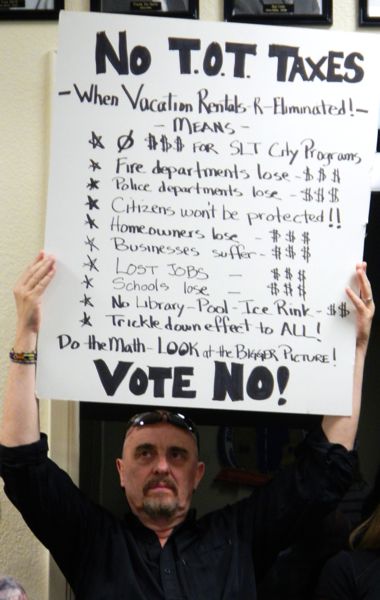 No T.O.T. TAXES
- When Vacation Rentals-R-Eliminated! -
- MEANS -
* Ø $$$ FOR SLT City Programs
* Fire departments lose - $$$
* Police departments lose - $$$
* Citizens won't be protected!!
* Homeowners lose - $$$
* Businesses suffer - $$$
* LOST JOBS - $$$
* Schools lose = $$$
* No Library - Pool - Ice Rink - $$
* Trickle down effect to ALL!
Do the Math - LOOK at the BIGGER PICTURE!
VOTE NO!